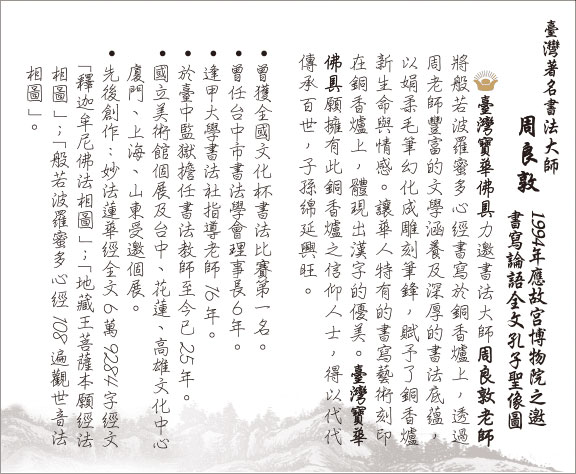 臺灣著名書法大師
周良敦
1994年應故宮博物院之邀
書寫論語全文孔子聖像圖
臺灣寶華佛具力邀書法大師周良敦老師
將般若波羅蜜多心經書寫於銅香爐上，透過
周老師豐富的文學涵養及深厚的書法底蘊，
以娟柔毛筆幻化成雕刻筆鋒，賦予了銅香爐
新生命與情感。讓華人特有的書寫藝術刻印
在銅香爐上，體現出漢字的優美。臺灣寶華
佛具願擁有此銅香爐之信仰人士，得以代代
傳承百世，子孫綿延興旺。
• 曾獲全國文化杯書法比賽第一名。
• 曾任台中市書法學會理事長6年。
• 逢甲大學書法社指導老師16年。
• 於臺中監獄擔任書法教師至今已25年。
• 國立美術館個展及台中、花蓮、高雄文化中心
廈門、上海、山東受邀個展。
• 先後創作：妙法蓮華經全文6萬9284字經文
「釋迦牟尼佛法相圖」；「地藏王菩薩本願經法
相圖」；「般若波羅蜜多心經108遍觀世音法
相圖」。